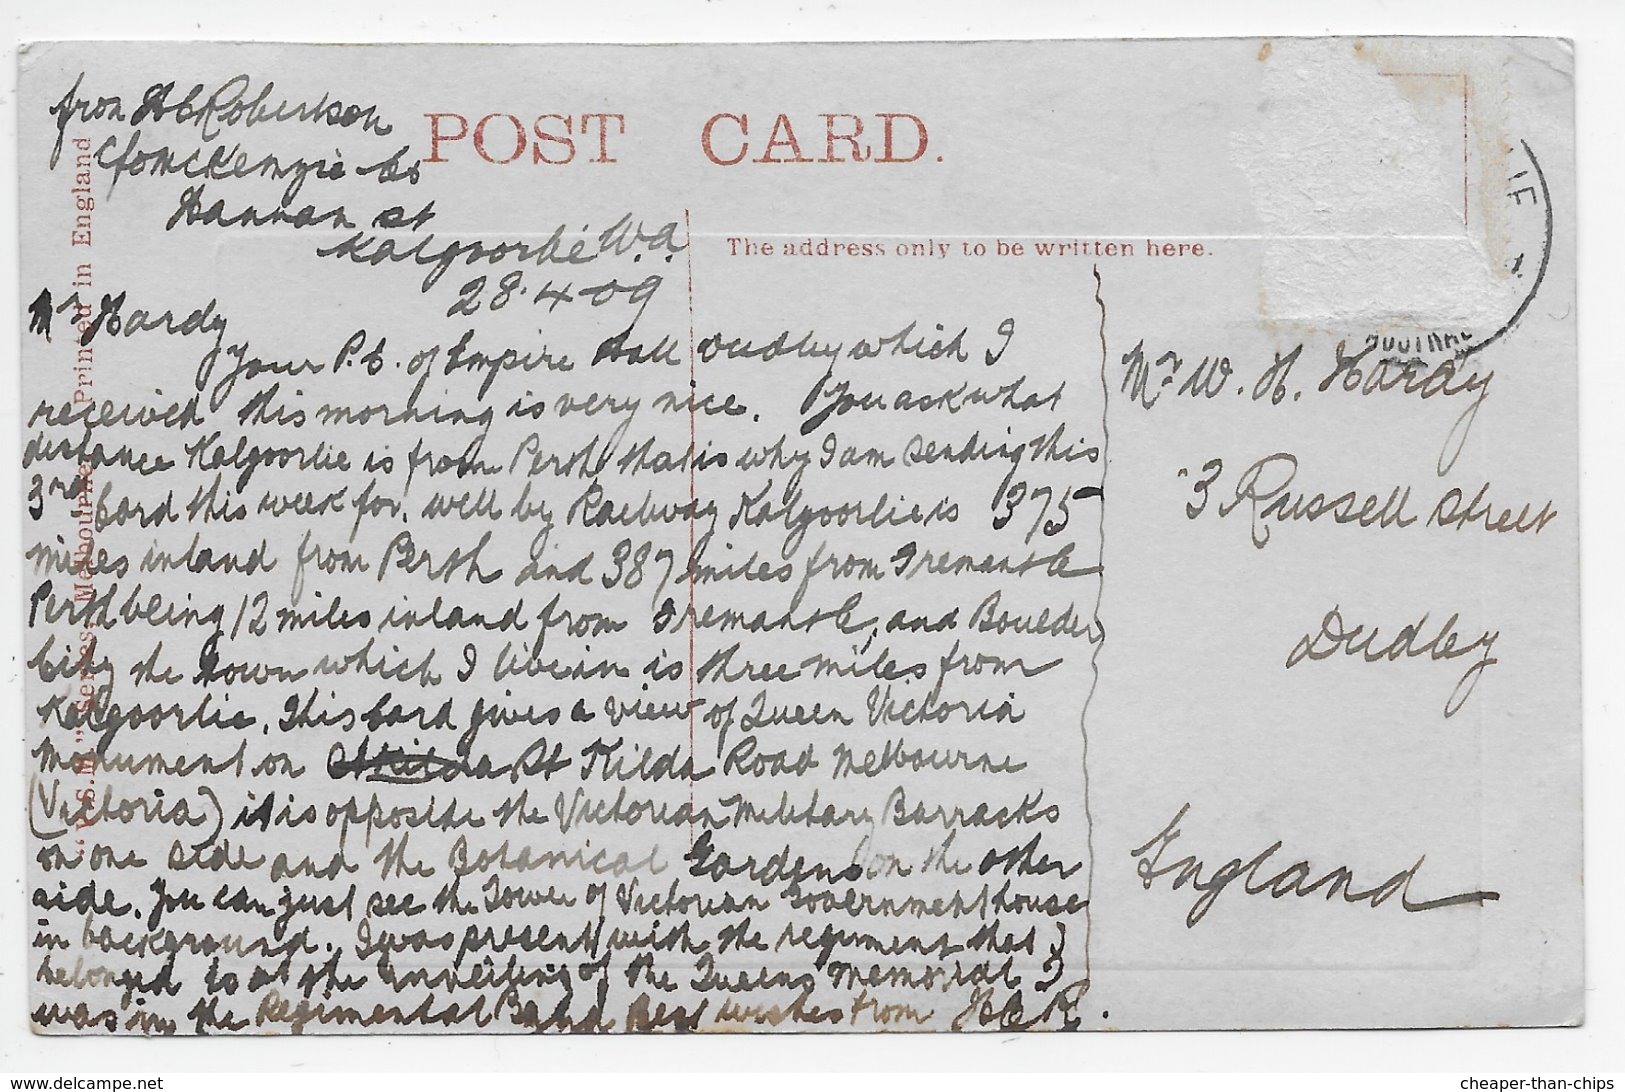 from H C Robertson
C/o McKenzie &
Hannan St
Kalgoorlie W.A.
28.4-09
POST CARD.
The address only to be written here.
Printed in England
Melbourne
"V.S.M." Series
Mr Hardy
Your P.C. of Empire Hall Dudley which I
received this morning is very nice. You ask what
distance Kalgoorlie is from Perth that is why I am sending this
3rd Card this week for. well by Railway Kalgoorlie is 375
miles inland from Perth and 387 miles from Fremantle
Perth being 12 miles inland from Fremantle, and Boulder
City the town which I live in is three miles from
Kalgoorlie. This card gives a view of Queen Victoria
Monument on St Kilda St Kilda Road Melbourne
(Victoria) it is opposite the Victorian Military Barracks
on one side and the Botanical Gardens on the other
side. You can just see the Tower of Victorian Government house
in background. I was present with the regiment that I
belonged to at the unveiling of the Queens memorial I
was in the Regimental Band Best wishes from H C R.
Mr W. H. Hardy
3 Russell Street
Dudley
England
cheaper-than-chips